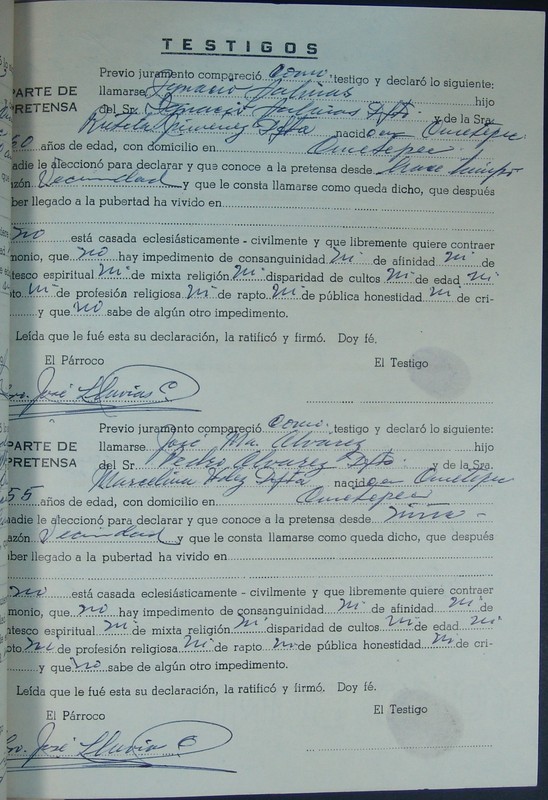 TESTIGOS
Previo juramento compareció como testigo y declaró lo siguiente:
PARTE DE llamarse Ignacio Salinas hijo
PRETENSA del Sr. Ignacio Salinas Dfto. y de la Sra.
Rutila Jimenez Dfta nacido en Ometepec
60 años de edad, con domicilio en Ometepec
adie le aleccionó para declarar y que conoce a la pretensa desde hace tiempo
azón Vecindad y que le consta llamarse como queda dicho, que después
ber llegado a la pubertad ha vivido en
no está casada eclesiásticamente - civilmente y que libremente quiere contraer
monio, que no hay impedimento de consanguinidad ni de afinidad ni de
tesco espiritual ni de mixta religión ni disparidad de cultos ni de edad ni
pto ni de profesión religiosa ni de rapto ni de pública honestidad ni de cri-
y que no sabe de algún otro impedimento.
Leída que le fué esta su declaración, la ratificó y firmó. Doy fé.
El Párroco El Testigo
José Lluvias C.
Previo juramento compareció como testigo y declaró lo siguiente:
PARTE DE llamarse José Ma. Alvarez hijo
PRETENSA del Sr. Pedro Alvarez Dfto. y de la Sra.
Marcelina Dfta nacido en Ometepec
55 años de edad, con domicilio en Ometepec
adie le aleccionó para declarar y que conoce a la pretensa desde niña -
azón Vecindad y que le consta llamarse como queda dicho, que después
ber llegado a la pubertad ha vivido en
no está casada eclesiásticamente - civilmente y que libremente quiere contraer
monio, que no hay impedimento de consanguinidad ni de afinidad ni de
tesco espiritual ni de mixta religión ni disparidad de cultos ni de edad ni
pto ni de profesión religiosa ni de rapto ni de pública honestidad ni de cri-
y que no sabe de algún otro impedimento.
Leída que le fué esta su declaración, la ratificó y firmó. Doy fé.
El Párroco El Testigo
José Lluvias C